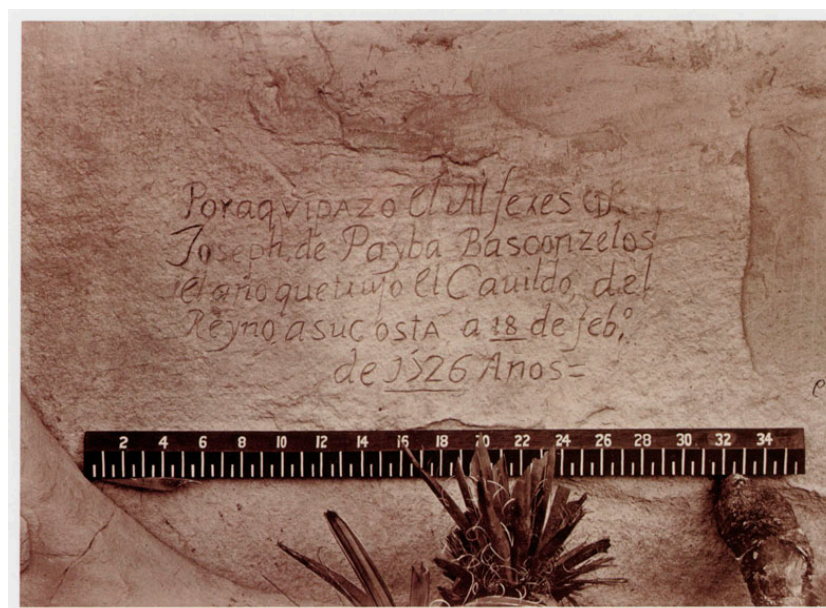 Por aqui pazo el Alferes Dn
Joseph de Payba Basconzelos
el año que trujo el Cauildo del
Reyno a su costa a 18 de feb.º
de 1526 Años=
2 4 6 8 10 12 14 16 18 20 22 24 26 28 30 32 34